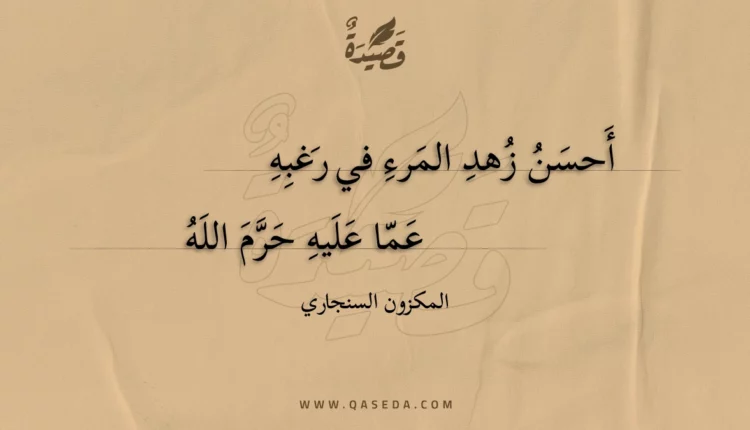 قَصِيدَةٌ
أَحسَنُ زُهدِ المَرءِ في رَغبِهِ
عَمّا عَلَيهِ حَرَّمَ اللَهُ
المكزون السنجاري
WWW.QASEDA.COM